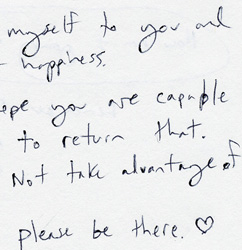 myself to you and
happiness.
hope you are capable
to return that.
Not take advantage of
please be there. ♡